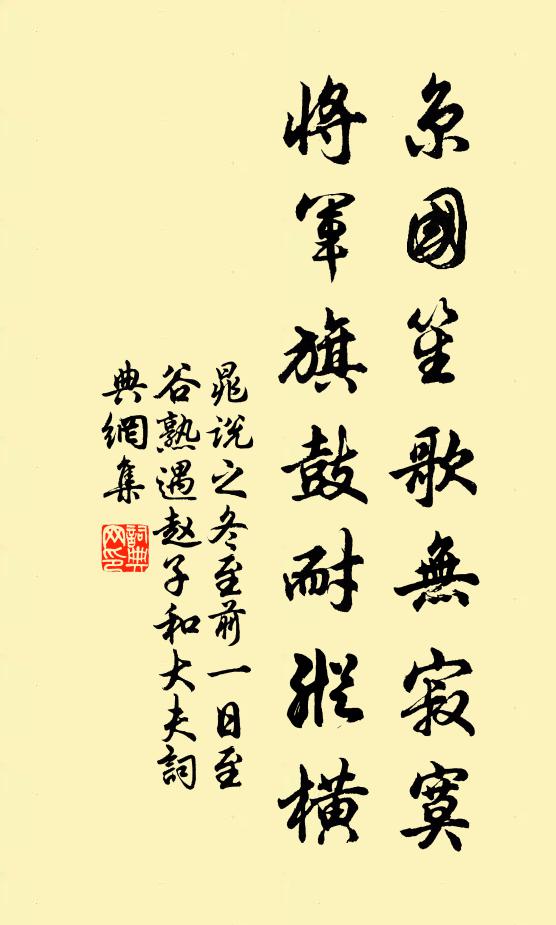 京國笙歌無寂寞
將軍旗鼓耐縱橫
晁说之冬至前一日至
谷熟遇赵子和大夫詞
典網集
詞典網印